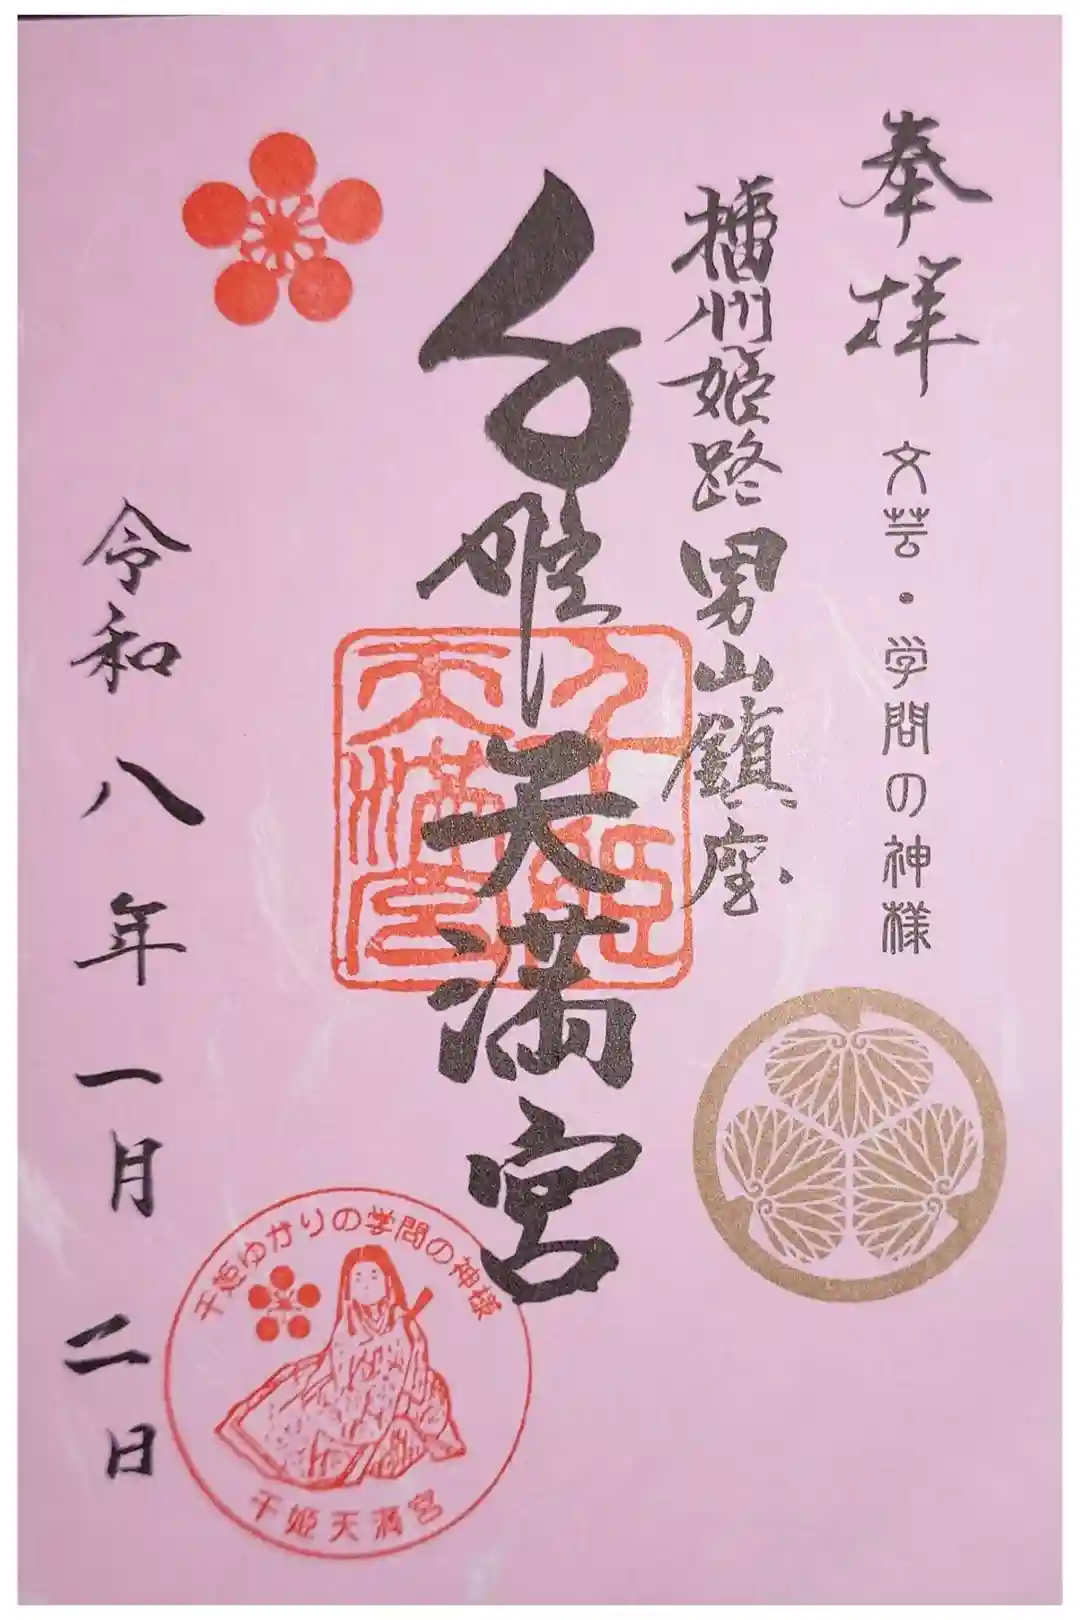 奉拝
文芸・学問の神様
播州姫路男山鎮座
千姫天満宮
千姫天満宮
令和八年一月二日
千姫ゆかりの学問の神様
千姫天満宮